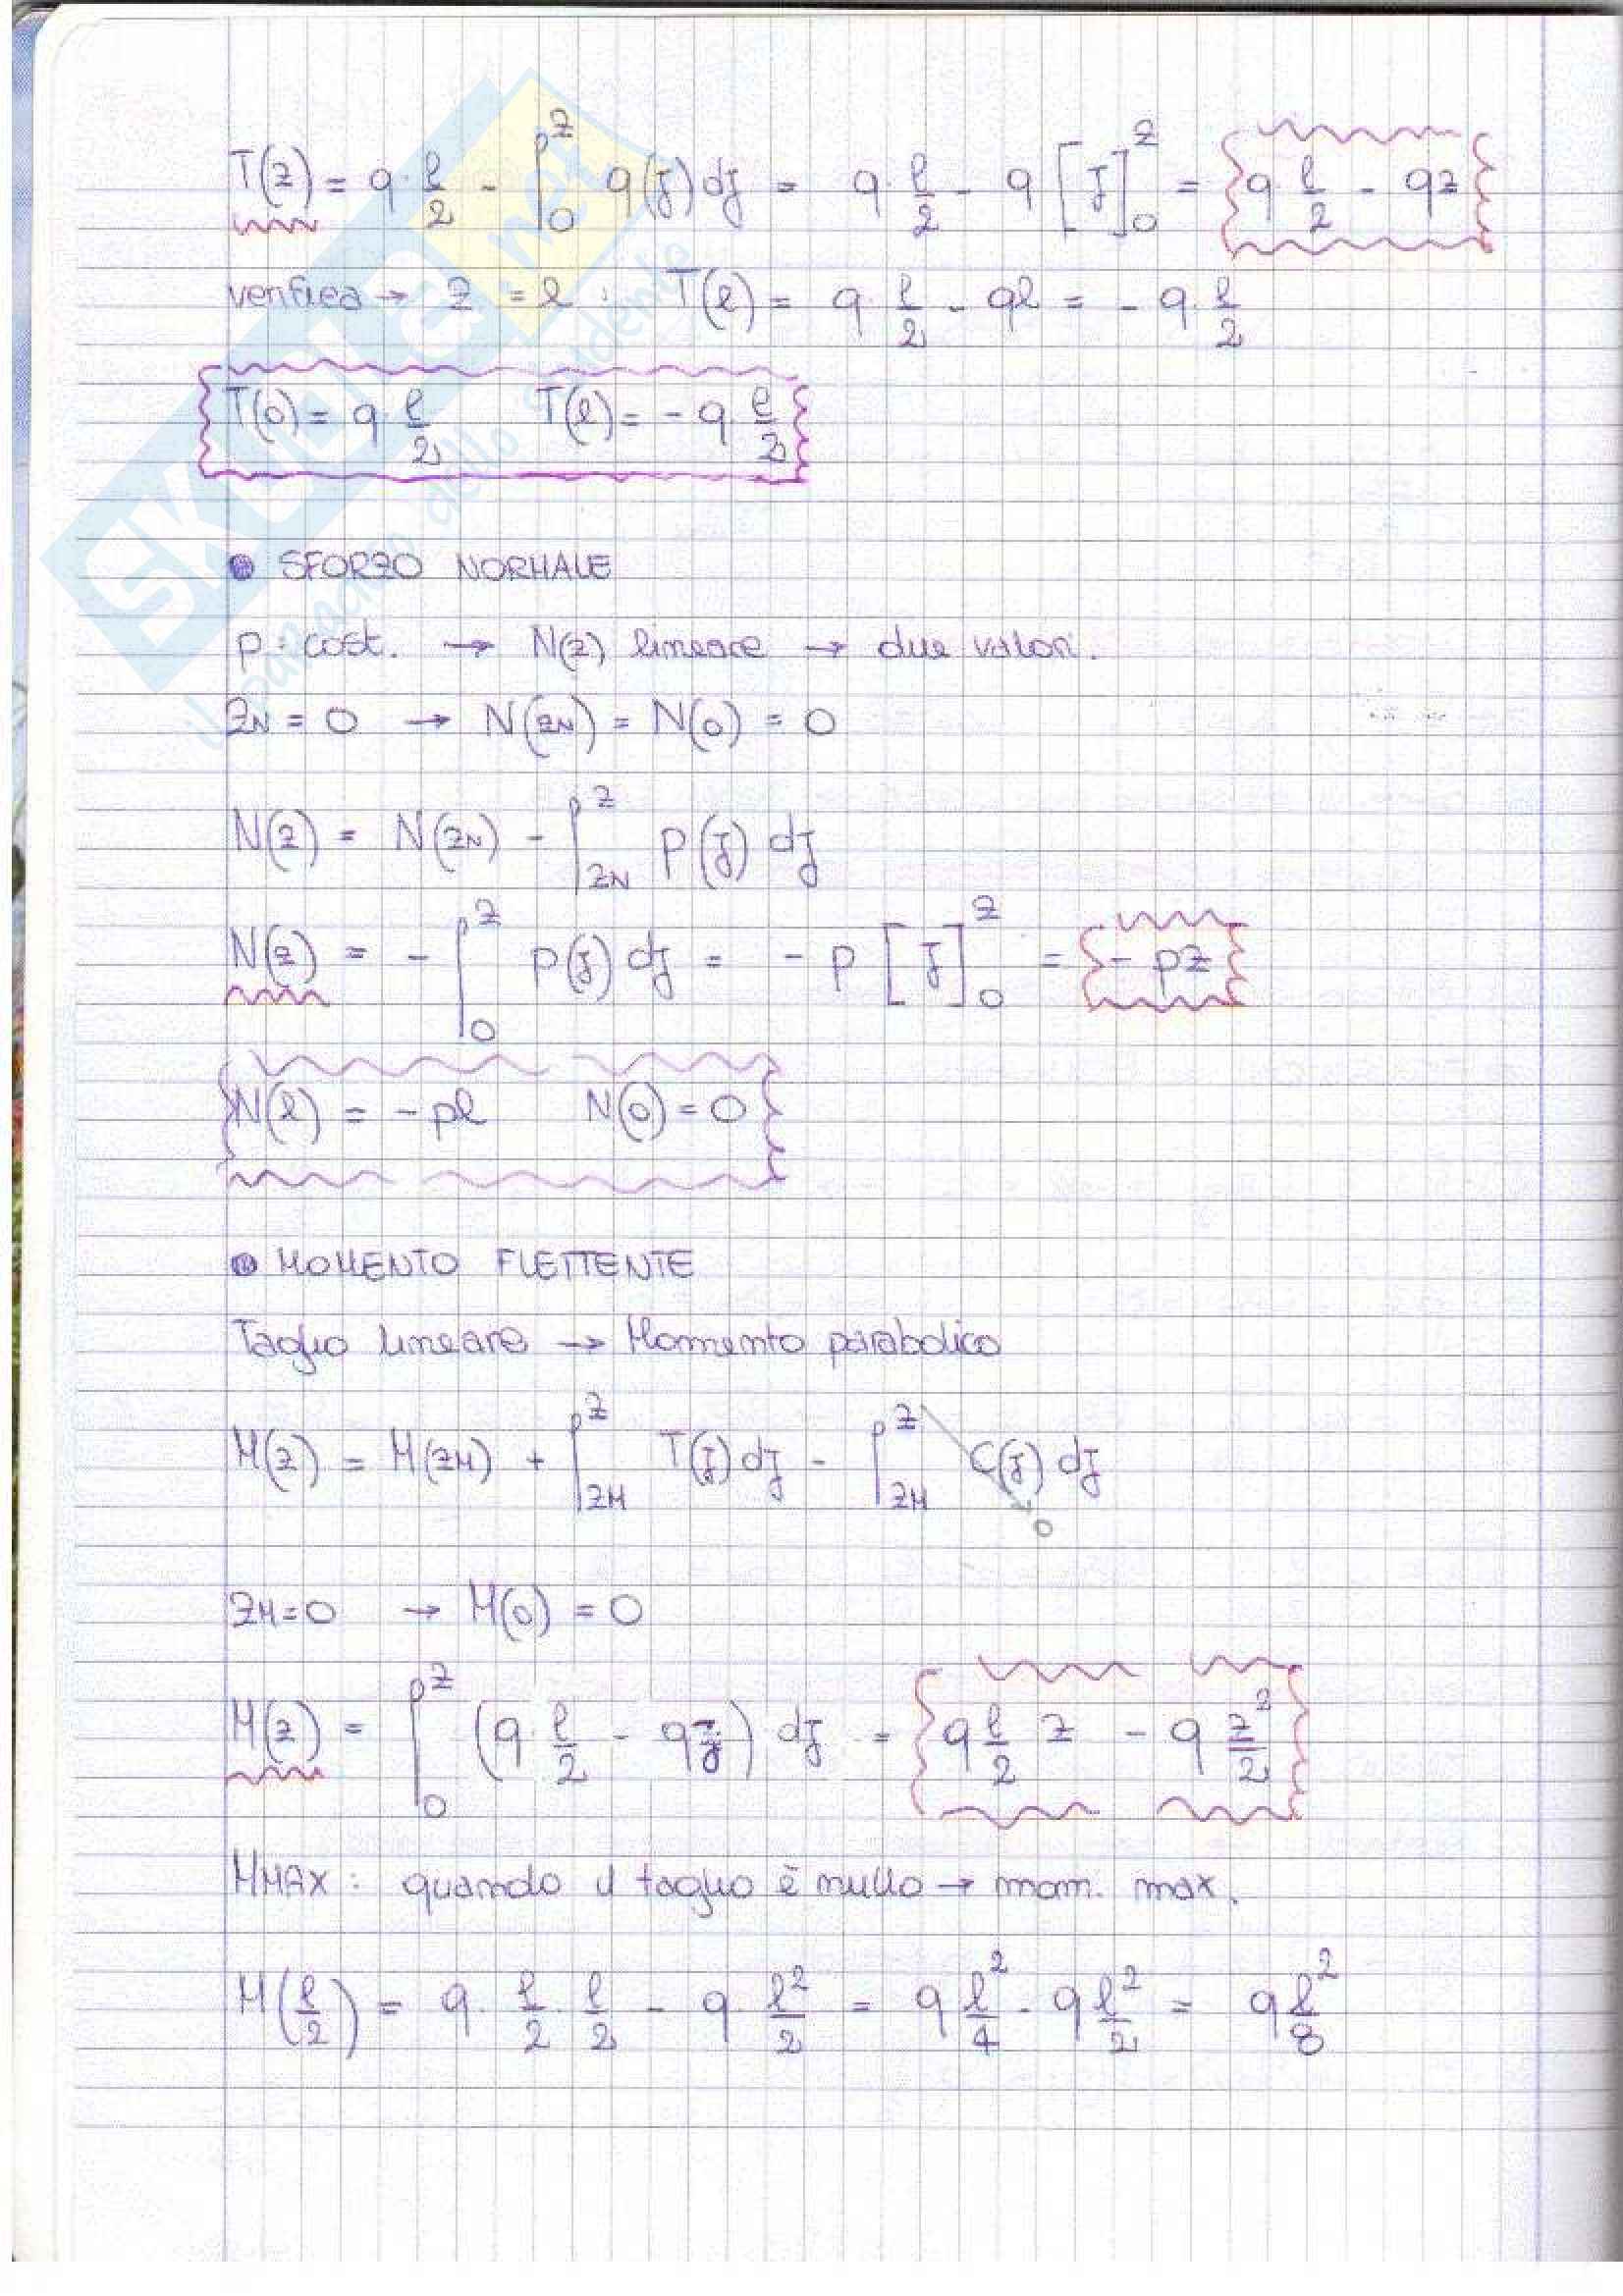 T(z) = q · l/2 - ∫₀ᶻ q(ʒ) dʒ = q · l/2 - q [ʒ]₀ᶻ = q · l/2 - qz
verifica → z = l : T(l) = q · l/2 - ql = - q · l/2
T(0) = q · l/2 T(l) = - q · l/2
• SFORZO NORMALE
p : cost. → N(z) lineare → due valori.
zN = 0 → N(zN) = N(0) = 0
N(z) = N(zN) - ∫zNᶻ p(ʒ) dʒ
N(z) = - ∫₀ᶻ p(ʒ) dʒ = - p [ʒ]₀ᶻ = - pz
N(l) = - pl N(0) = 0
• MOMENTO FLETTENTE
Taglio lineare → Momento parabolico
M(z) = M(zM) + ∫zMᶻ T(ʒ) dʒ - ∫zMᶻ C(ʒ) dʒ
0
zM = 0 → M(0) = 0
M(z) = ∫₀ᶻ (q · l/2 - qʒ) dʒ = q l/2 z - q z²/2
MMAX : quando il taglio è nullo → mom. max.
M(l/2) = q · l/2 · l/2 - q · l²/2 = q l²/4 - q l²/2 = q l²/8
SKUOLA.net
il paradiso dello studente